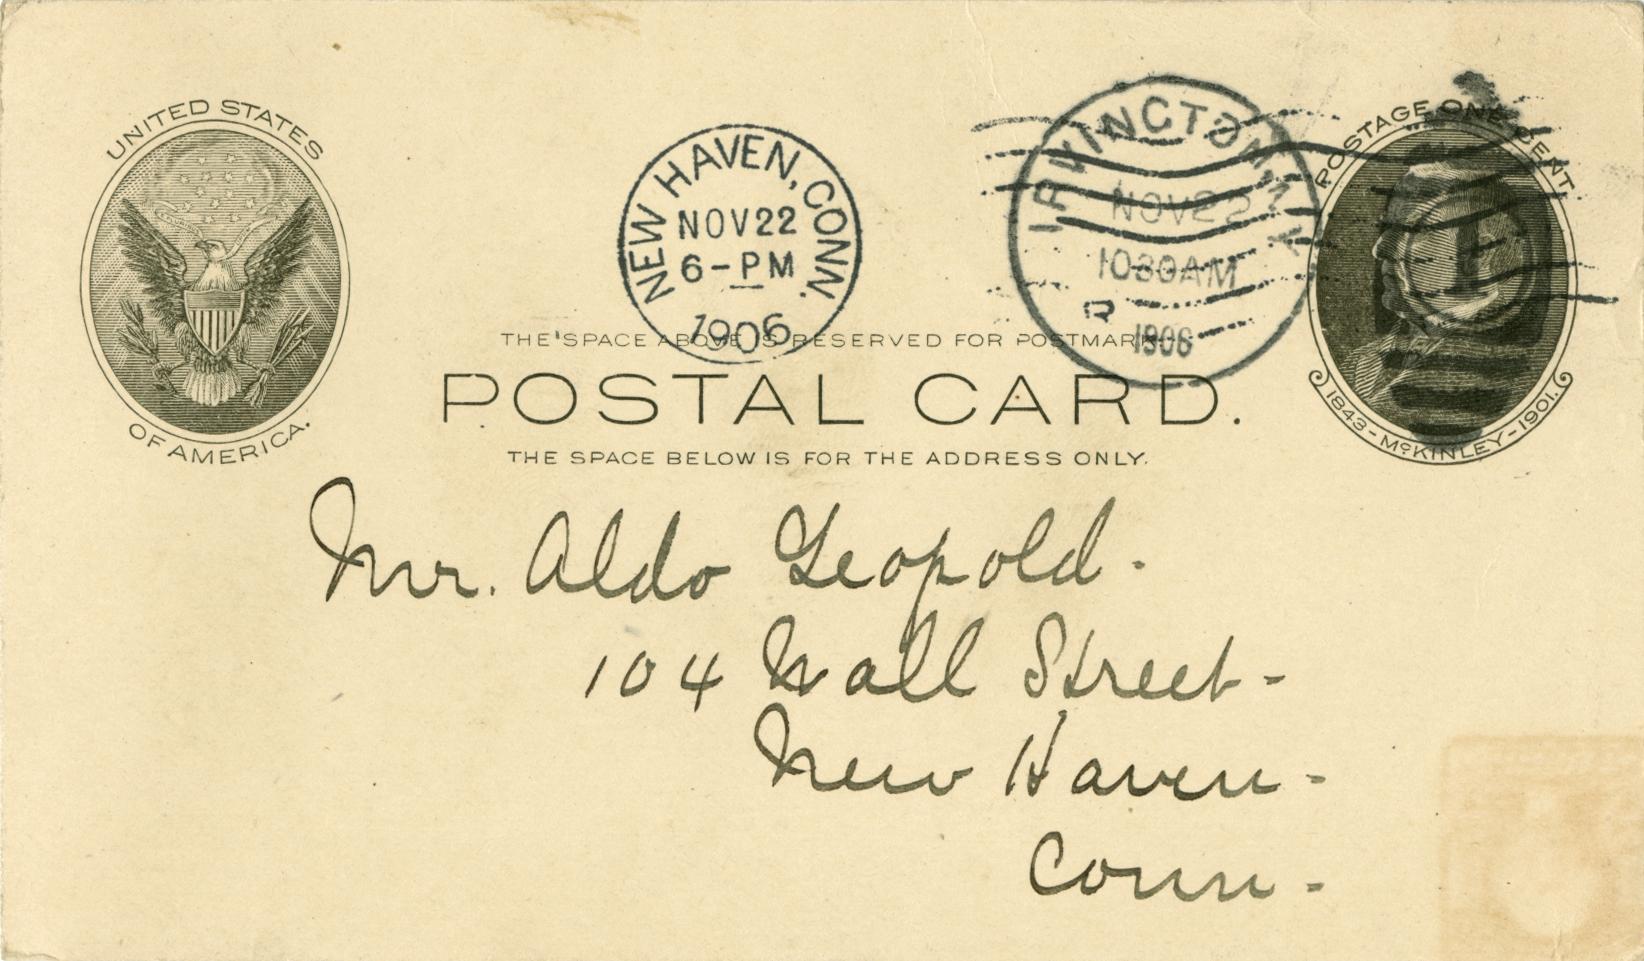 UNITED STATES
OF AMERICA.
NEW HAVEN, CONN.
NOV 22
6-PM
1906
IRVINGTON, N.Y.
NOV 22
1030AM
1906
POSTAGE ONE CENT
1843-McKINLEY-1901.
THE SPACE ABOVE IS RESERVED FOR POSTMARK.
POSTAL CARD.
THE SPACE BELOW IS FOR THE ADDRESS ONLY.
Mr. Aldo Leopold.
104 Wall Street-
New Haven-
Conn-